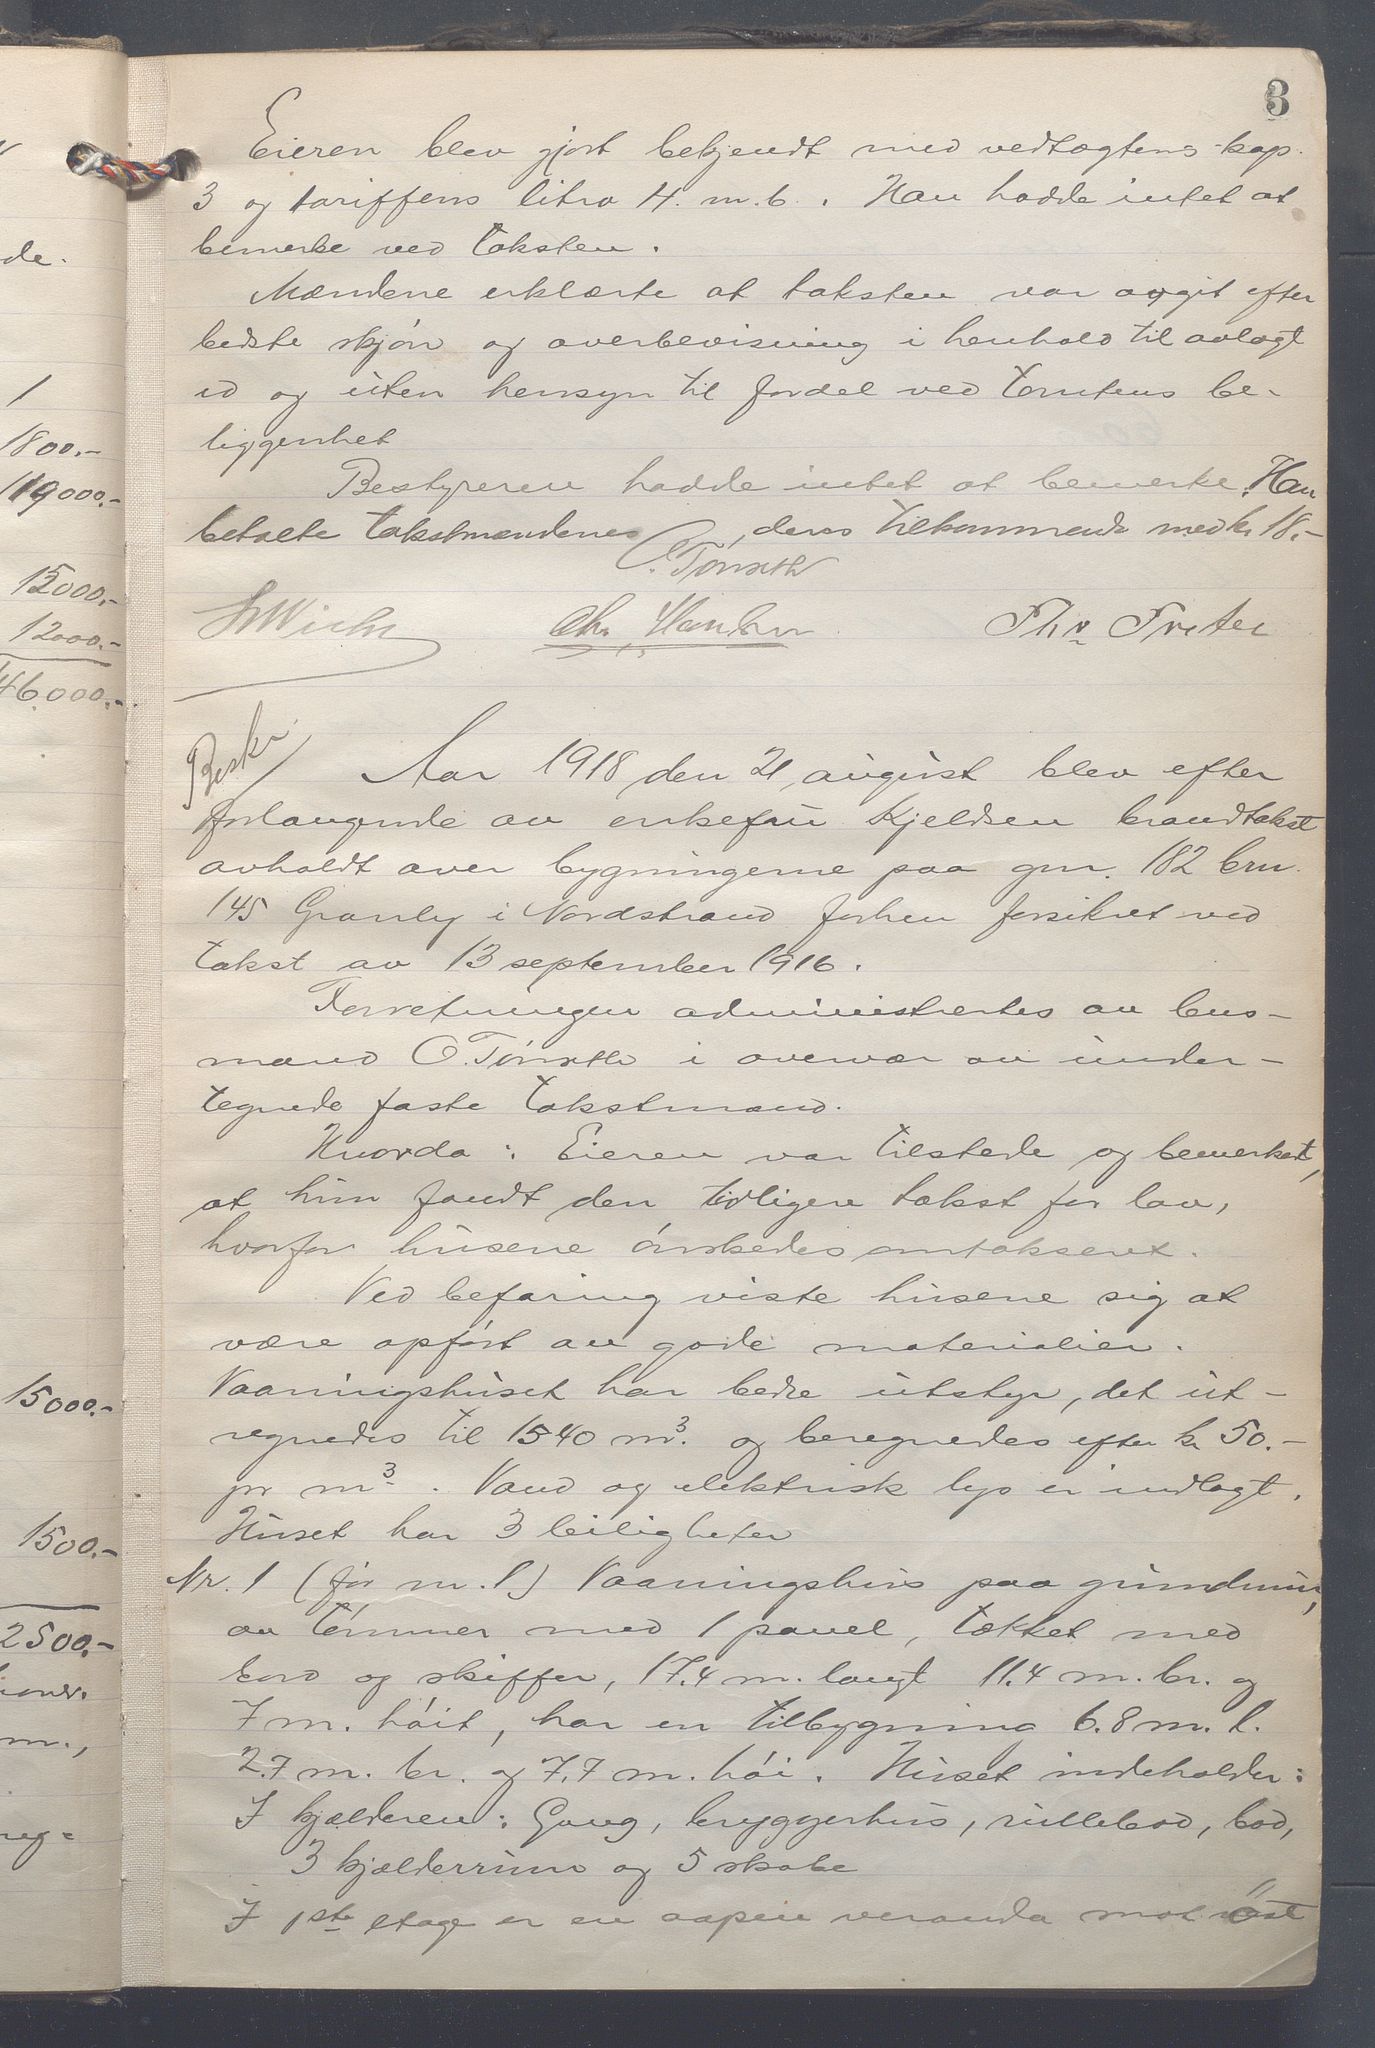 3
Eieren blev gjort bekjendt med vedtægtens kap.
3 og tariffens litra H. m. 6. Han hadde intet at
bemerke ved taksten.
Mændene erklærte at taksten var avgit efter
bedste skjøn og overbevisning i henhold til avlagt
ed og uten hensyn til fordel ved tomtens be-
liggenhet
Bestyreren hadde intet at bemerke. Han
betalte takstmændenes, deres tilkommende med kr. 18.-
O. Tønseth
Chr.
Beskr.
Aar 1918 den 21 august blev efter
forlangende av enkefru Kjeldsen brandtakst
avholdt over bygningerne paa gnr. 182 brn.
145 Granly i Nordstrand forhen forsikret ved
takst av 13 september 1916.
Forretningen administrertes av lens-
mand O. Tønseth i overvær av under-
tegnede faste takstmænd.
Hvorda: Eieren var tilstede og bemerket,
at hun fandt den tidligere takst for lav,
hvorfor husene ønskedes omtaksert.
Ved befaring viste husene sig at
være opført av gode materialier.
Vaaningshuset har bedre utstyr, det ut-
regnedes til 1540 m³. og beregnedes efter kr 50.-
pr m³. Vand og elektrisk lys er indlagt.
Huset har 3 leiligheter
Nr. 1 (før m. 1) Vaaningshus paa grundmur,
av tømmer med 1 panel, tækket med
bord og skiffer, 17.4 m. langt 11.4 m. br. og
7 m. høit, har en tilbygning 6.8 m. l.
2.7 m. br. og 7.7 m. høi. Huset indeholder:
I kjælderen: Gang, bryggerhus, rullebod, bod,
3 kjælderrum og 5 skabe
I 1ste etage er en aapen veranda mot øst
de.
1
1800.-
15000.-
12000.-
46.000.-
15000.-
1500.-
2500.-
m.,